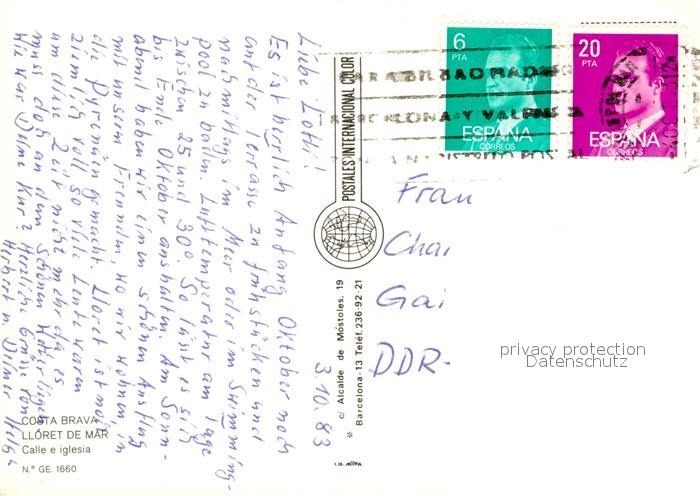 6
PTA
ESPAÑA
CORREOS
20
PTA
ESPAÑA
CORREOS
PARA BILBAO MADRID
BARCELONA Y VALENCIA
POSTALES INTERNACIONAL COLOR
c/ Alcalde de Móstoles, 19
Barcelona-13 Teléf. 236-92-21
3.10.83
Liebe Lotti!
Es ist herrlich Anfang Oktober noch
auf der Terrasse zu frühstücken und
nachmittag im Meer oder im Swimming-
pool zu baden. Lufttemperatur am Tage
zwischen 25 und 30°. So läßt es sich
bis Ende Oktober aushalten. Am Sonn-
abend haben wir einen schönen Ausflug
mit unserer Freundin wo wir wohnen, in
die Pyrenäen gemacht. Lloret ist noch
ziemlich voll. So viele Leute waren
um diese Zeit nicht mehr da, es
muss doch an dem schönen Wetter liegen.
Wie war Deine Kur? Herzliche Grüße von Helga
Herbert u.
Frau
Char
Gai
DDR-
privacy protection
Datenschutz
COSTA BRAVA
LLORET DE MAR
Calle e iglesia
N.º GE. 1660